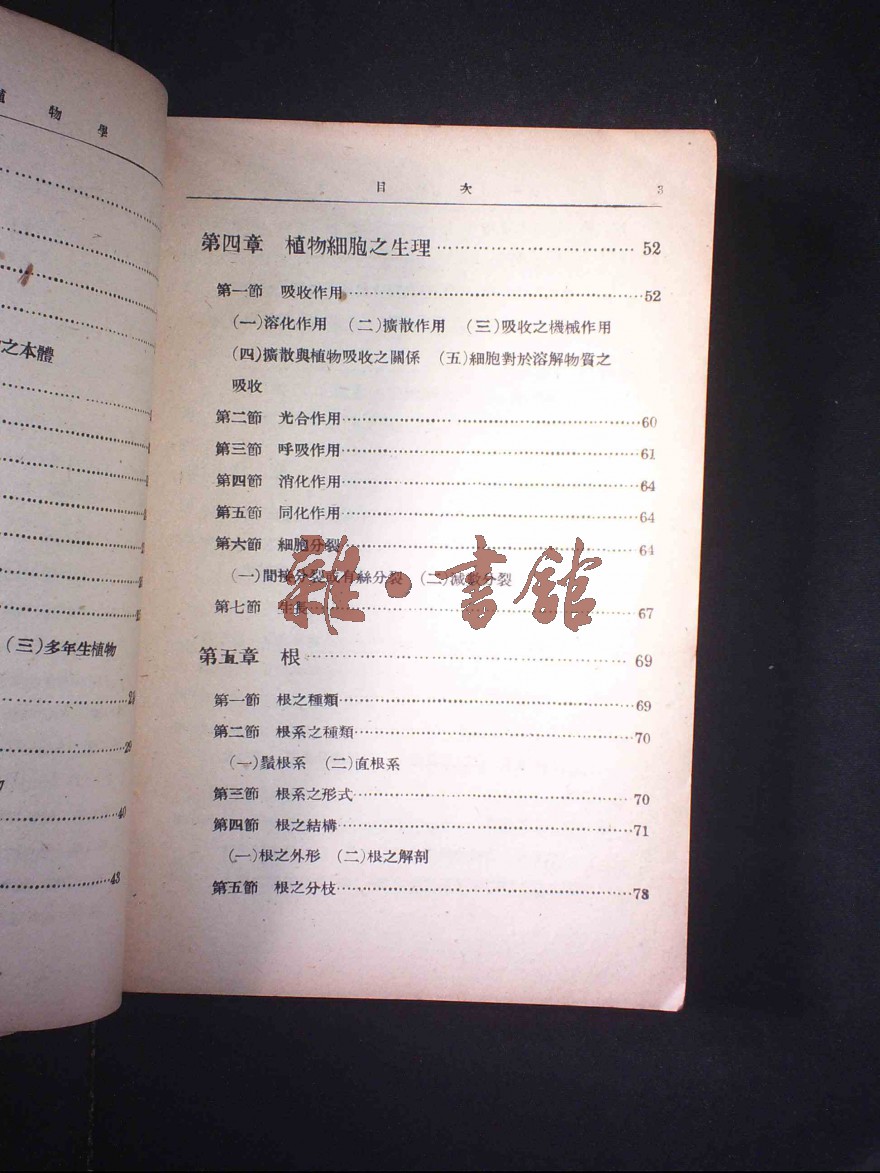 物學
之本體
(三)多年生植物
29
40
43
目次 3
第四章 植物細胞之生理………………………………52
第一節 吸收作用………………………………52
(一)溶化作用 (二)擴散作用 (三)吸收之機械作用
(四)擴散與植物吸收之關係 (五)細胞對於溶解物質之
吸收
第二節 光合作用………………………………60
第三節 呼吸作用………………………………61
第四節 消化作用………………………………64
第五節 同化作用………………………………64
第六節 細胞分裂………………………………64
(一)間接分裂或有絲分裂 (二)減數分裂
第七節 生長………………………………67
第五章 根………………………………69
第一節 根之種類………………………………69
第二節 根系之種類………………………………70
(一)鬚根系 (二)直根系
第三節 根系之形式………………………………70
第四節 根之結構………………………………71
(一)根之外形 (二)根之解剖
第五節 根之分枝………………………………73
雜·書館